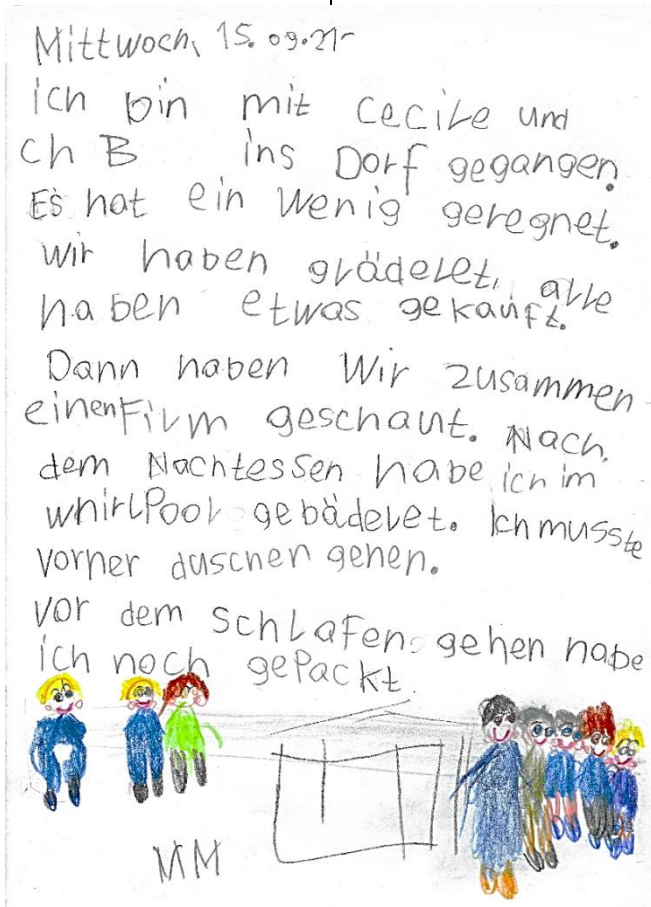 Mittwoch, 15.09.21-
ich bin mit Cecile und
Ch B ins Dorf gegangen.
Es hat ein wenig geregnet.
Wir haben glädelet, alle
haben etwas gekauft.
Dann haben Wir zusammen
einen Film geschaut. Nach
dem Nachtessen habe ich im
whirlPool gebädelet. Ich musste
vorher duschen gehen.
Vor dem Schlafen gehen habe
ich noch gePackt.
MM